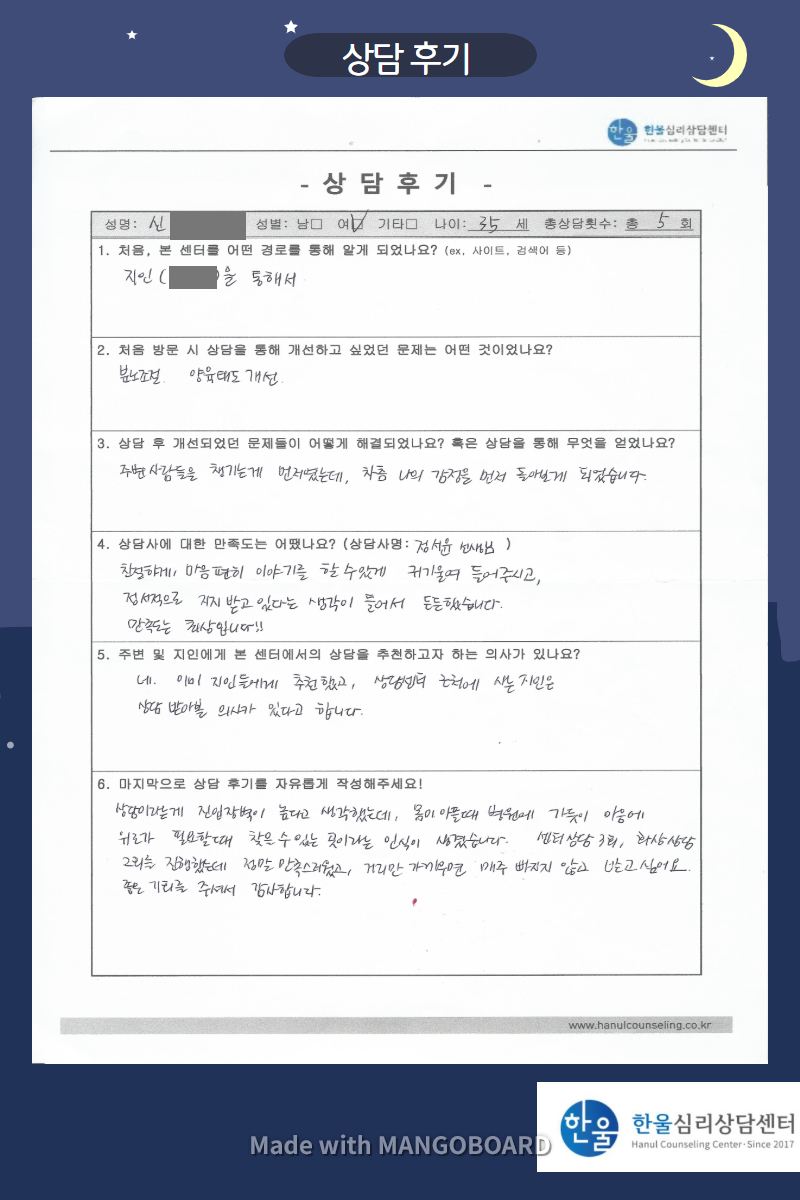 상담 후기
한울 한울심리상담센터
- 상 담 후 기 -
성명: 신 성별: 남□ 여☑ 기타□ 나이: 35 세 총상담횟수: 총 5 회
1. 처음, 본 센터를 어떤 경로를 통해 알게 되었나요? (ex, 사이트, 검색어 등)
지인 ( )을 통해서
2. 처음 방문 시 상담을 통해 개선하고 싶었던 문제는 어떤 것이었나요?
분노조절. 양육태도 개선.
3. 상담 후 개선되었던 문제들이 어떻게 해결되었나요? 혹은 상담을 통해 무엇을 얻었나요?
주변사람들을 챙기는게 먼저였는데, 차츰 나의 감정을 먼저 돌아보게 되었습니다.
4. 상담사에 대한 만족도는 어땠나요? (상담사명: 정서윤 선생님 )
친절하게, 마음편히 이야기를 할 수 있게 귀기울여 들어주시고,
정서적으로 지지 받고 있다는 생각이 들어서 든든했습니다.
만족도는 최상입니다!!
5. 주변 및 지인에게 본 센터에서의 상담을 추천하고자 하는 의사가 있나요?
네. 이미 지인들에게 추천했고, 상담센터 근처에 사는 지인은
상담 받아볼 의사가 있다고 합니다.
6. 마지막으로 상담 후기를 자유롭게 작성해주세요!
상담이라는게 진입장벽이 높다고 생각했는데, 몸이 아플때 병원에 가듯이 마음에
위로가 필요할때 찾을 수 있는 곳이라는 인식이 생겼습니다. 센터상담 3회, 화상상담
2회를 진행했는데 정말 만족스러웠고, 거리만 가까우면 매주 빠지지 않고 받고 싶어요.
좋은 기회를 주셔서 감사합니다.
www.hanulcounseling.co.kr
한울 한울심리상담센터
Hanul Counseling Center·Since 2017
Made with MANGOBOARD